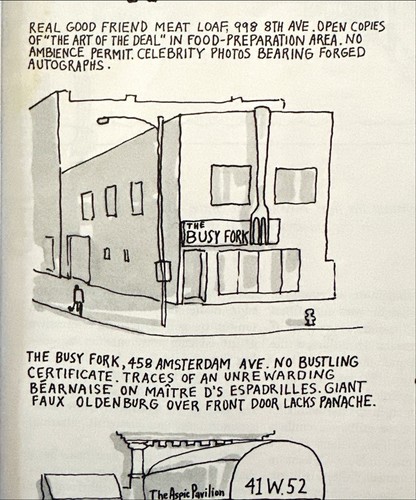 REAL GOOD FRIEND MEAT LOAF, 998 8TH AVE. OPEN COPIES
OF "THE ART OF THE DEAL" IN FOOD-PREPARATION AREA. NO
AMBIENCE PERMIT. CELEBRITY PHOTOS BEARING FORGED
AUTOGRAPHS.
THE
BUSY FORK
THE BUSY FORK, 458 AMSTERDAM AVE. NO BUSTLING
CERTIFICATE. TRACES OF AN UNREWARDING
BÉARNAISE ON MAÎTRE D'S ESPADRILLES. GIANT
FAUX OLDENBURG OVER FRONT DOOR LACKS PANACHE.
The Aspic Pavilion
41 W. 52